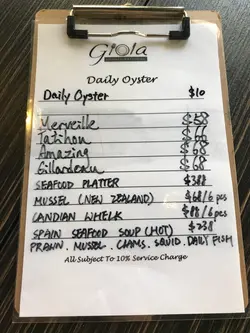 Giola
Daily Oyster
Daily Oyster $10
Merveille $58
Tatihou $68
Amazing $68
Gillardeau $68
SEAFOOD PLATTER $388
MUSSEL (NEW ZEALAND) $68/6 pcs
CANDIAN WHELK $88/6 pcs
SPAIN SEAFOOD SOUP (HOT) $238
PRAWN. MUSSEL. CLAMS. SQUID. DAILY FISH
All Subject To 10% Service Charge